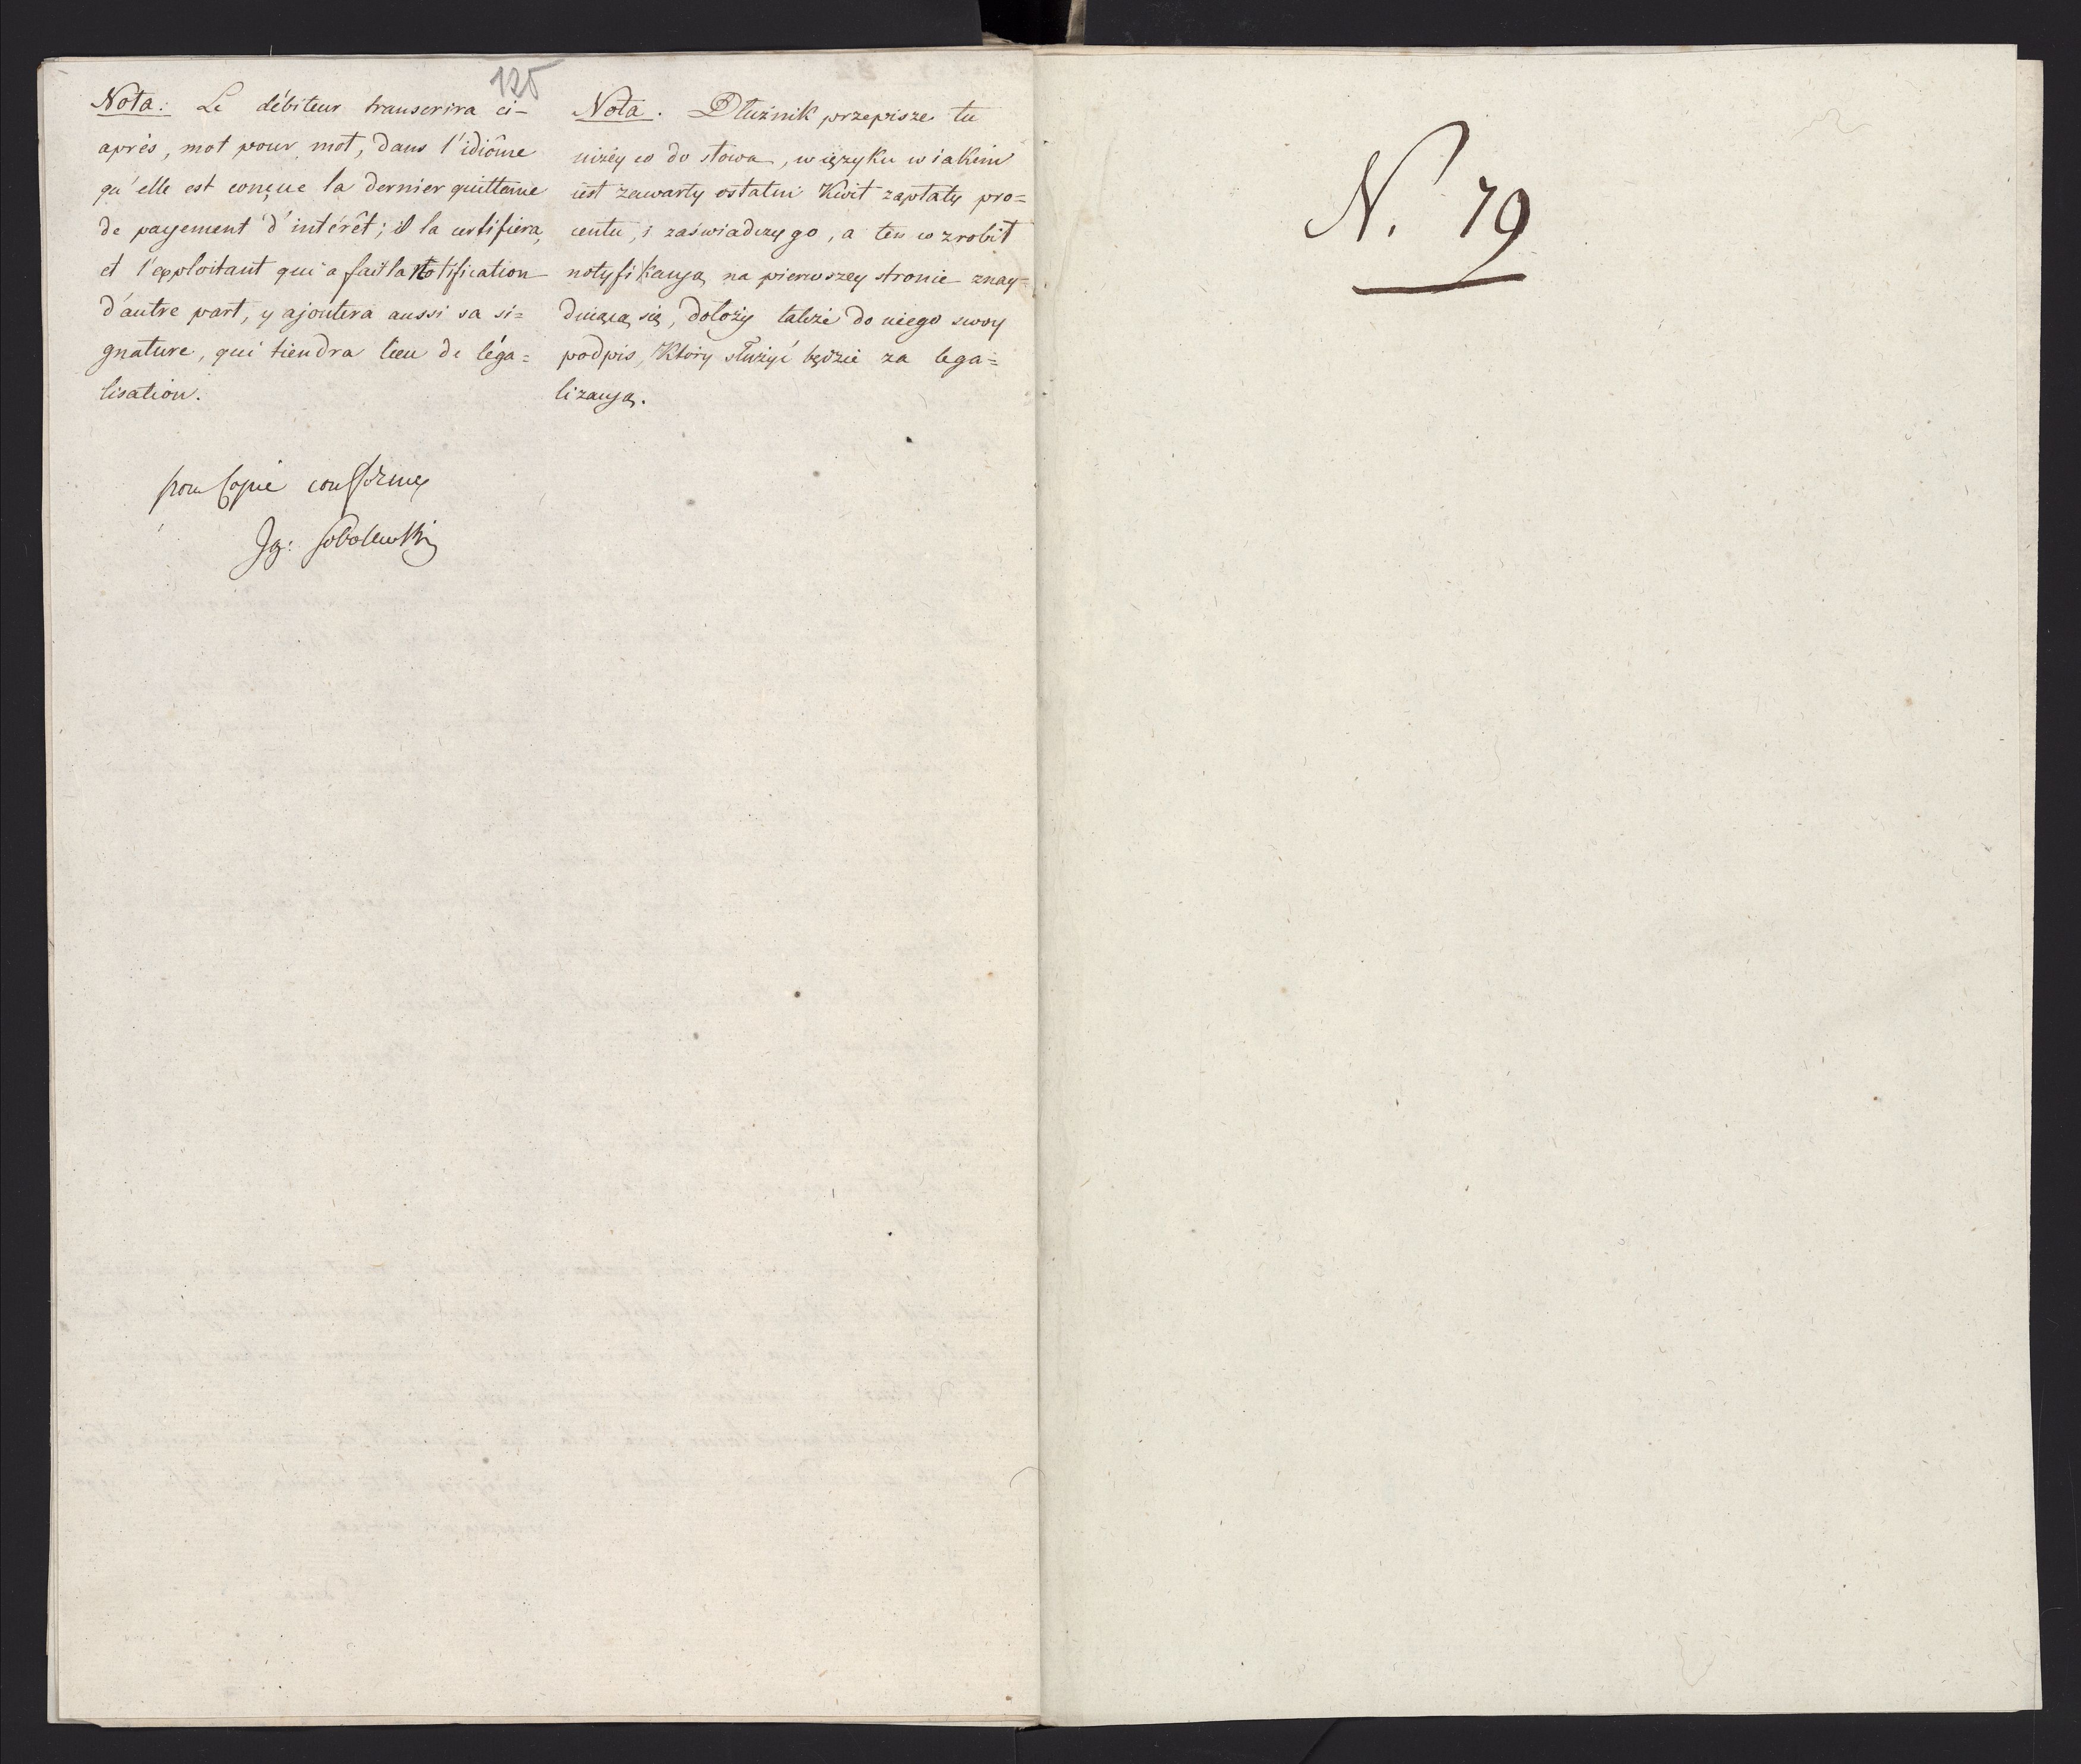 125
Nota: Le débiteur transcrira ci-
après, mot pour mot, dans l'idiôme
qu'elle est conçue la dernier quittance
de payement d'intérêt; il la certifiera,
et l'exploitant qui a fait la Notification
d'autre part, y ajoutera aussi sa si=
gnature, qui tiendra lieu de léga=
lisation.
pour Copie conforme
Ig: Sobolewski
Nota. Dłużnik przepisze tu
niżéy co do słowa, w ięzyku w iakim
iest zawarty ostatni Kwit zapłaty pro=
centu, i zaświadczy go, a ten co zrobił
notyfikacyą na pierwszey stronie znay=
duiącą się, dołoży także do niego swoy
podpis, Który służyć będzie za lega=
lizacyą.
N. 79